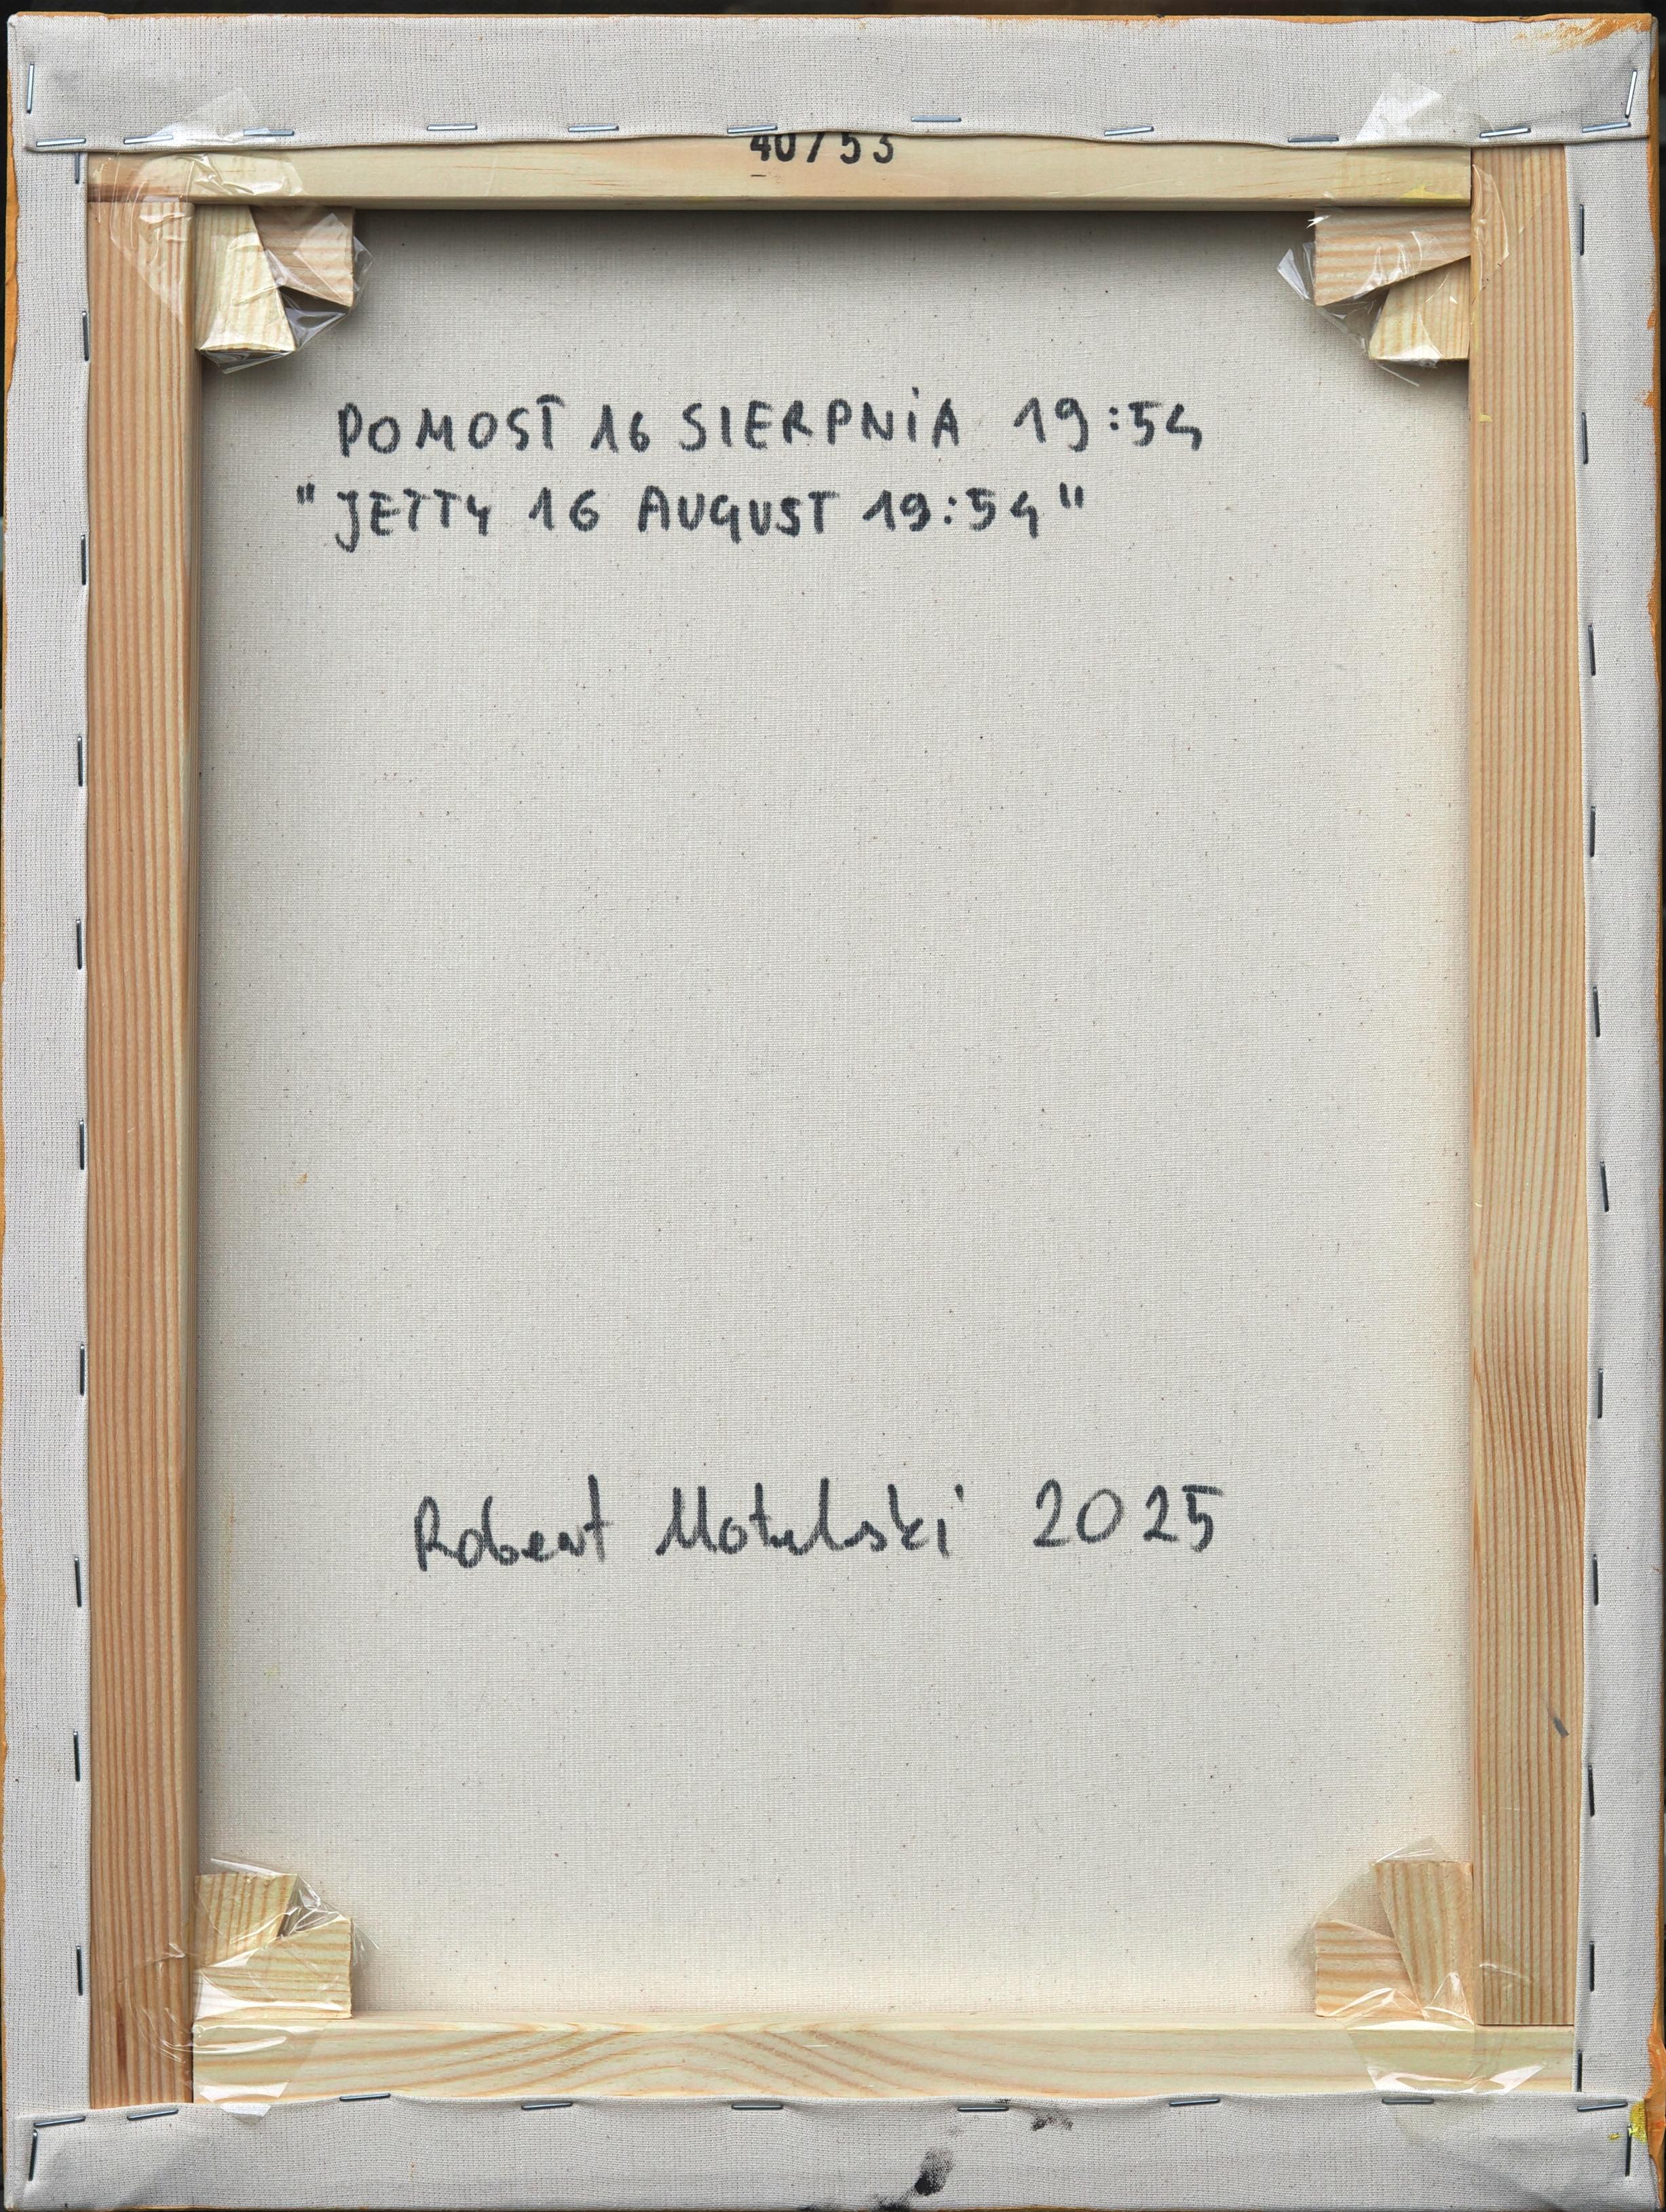 40/53
POMOST 16 SIERPNIA 19:54
"JETTY 16 AUGUST 19:54"
Robert Motelski 2025